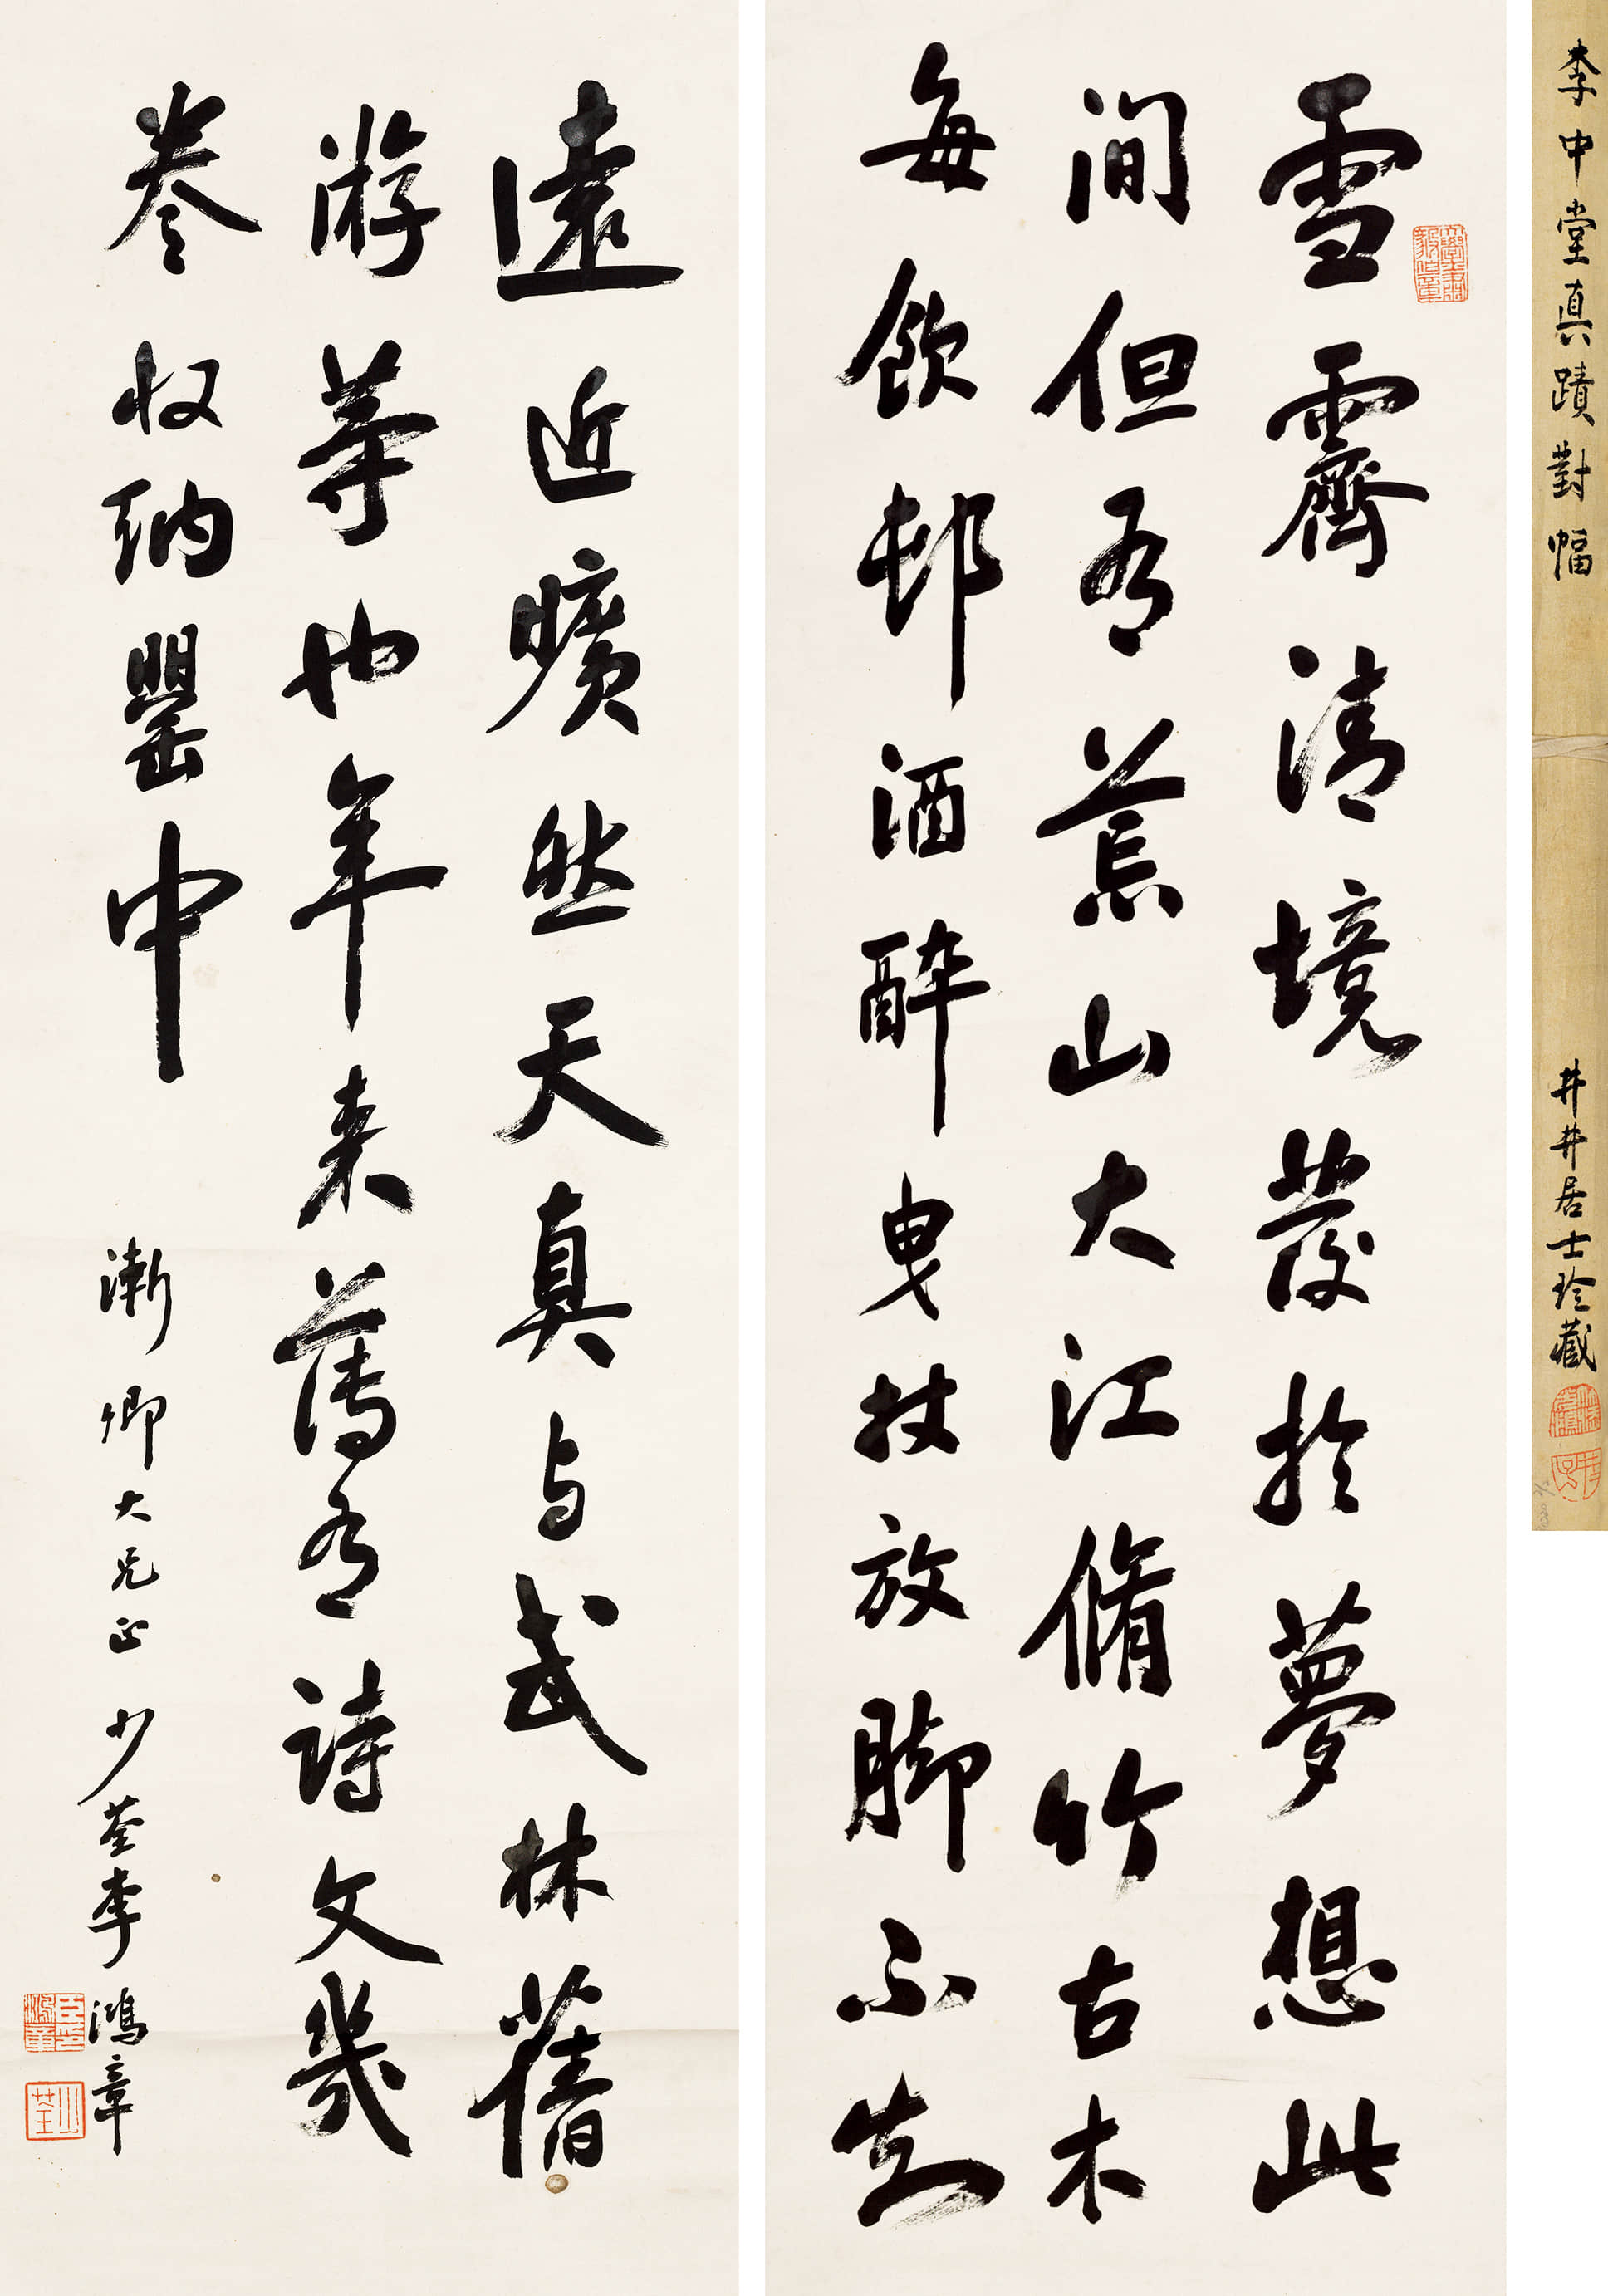 雪霽清境發於夢想此
間但有荒山大江脩竹古木
每飲邨酒醉曳杖放脚不知
遠近曠然天真与武林舊
游等也年来薄有詩文幾
卷收納罌中
漸卿大兄正 少荃李鴻章
李中堂真蹟對幅
井井居士珍藏